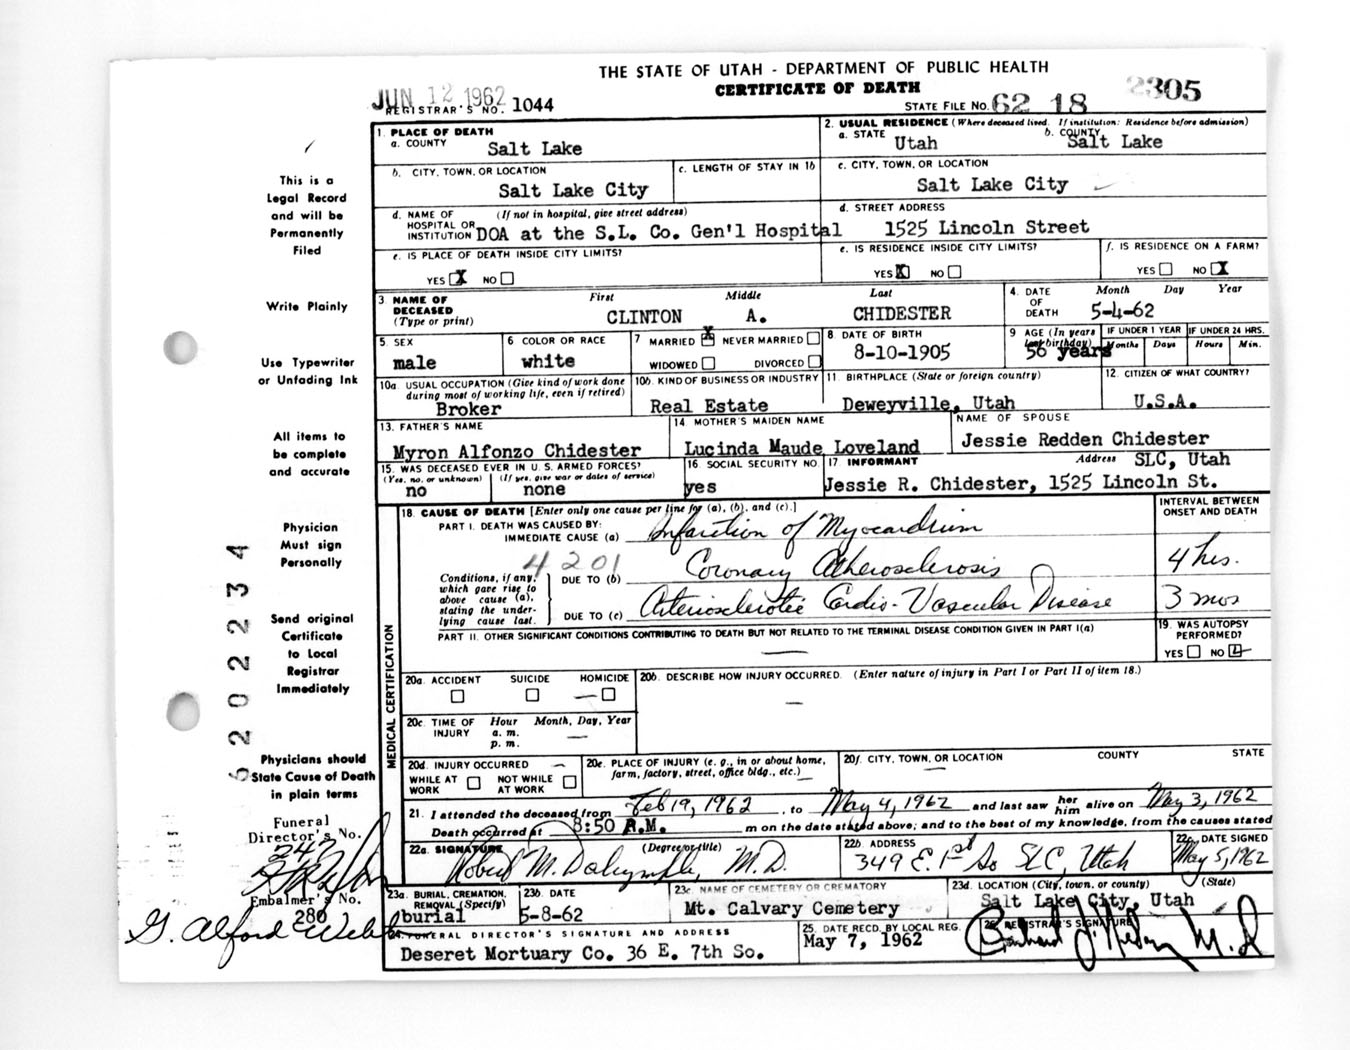 THE STATE OF UTAH - DEPARTMENT OF PUBLIC HEALTH
CERTIFICATE OF DEATH
JUN 12 1962
REGISTRAR'S NO. 1044
STATE FILE NO. 62 18 2305
This is a
Legal Record
and will be
Permanently
Filed
Write Plainly
Use Typewriter
or Unfading Ink
All items to
be complete
and accurate
Physician
Must sign
Personally
Send original
Certificate
to Local
Registrar
Immediately
Physicians should
State Cause of Death
in plain terms
Funeral
Director's No.
247
Embalmer's No.
280
G. Alford
1. PLACE OF DEATH
a. COUNTY Salt Lake
2. USUAL RESIDENCE (Where deceased lived. If institution: Residence before admission)
a. STATE Utah b. COUNTY Salt Lake
b. CITY, TOWN, OR LOCATION Salt Lake City
c. LENGTH OF STAY IN 1b
c. CITY, TOWN, OR LOCATION Salt Lake City
d. NAME OF (If not in hospital, give street address)
HOSPITAL OR
INSTITUTION DOA at the S.L. Co. Gen'l Hospital
d. STREET ADDRESS
1525 Lincoln Street
e. IS PLACE OF DEATH INSIDE CITY LIMITS?
YES X NO
e. IS RESIDENCE INSIDE CITY LIMITS?
YES X NO
f. IS RESIDENCE ON A FARM?
YES NO X
3. NAME OF DECEASED (Type or print)
First Middle Last
CLINTON A. CHIDESTER
4. DATE OF DEATH Month Day Year
5-4-62
5. SEX
male
6 COLOR OR RACE
white
7 MARRIED X NEVER MARRIED
WIDOWED DIVORCED
8. DATE OF BIRTH
8-10-1905
9 AGE (In years last birthday)
56 years
IF UNDER 1 YEAR IF UNDER 24 HRS.
Months Days Hours Min.
10a. USUAL OCCUPATION (Give kind of work done
during most of working life, even if retired)
Broker
10b. KIND OF BUSINESS OR INDUSTRY
Real Estate
11. BIRTHPLACE (State or foreign country)
Deweyville, Utah
12. CITIZEN OF WHAT COUNTRY?
U.S.A.
13. FATHER'S NAME
Myron Alfonzo Chidester
14 MOTHER'S MAIDEN NAME
Lucinda Maude Loveland
NAME OF SPOUSE
Jessie Redden Chidester
15. WAS DECEASED EVER IN U.S. ARMED FORCES?
(Yes, no, or unknown) (If yes, give war or dates of service)
no none
16. SOCIAL SECURITY NO.
yes
17. INFORMANT Address SLC, Utah
Jessie R. Chidester, 1525 Lincoln St.
MEDICAL CERTIFICATION
18. CAUSE OF DEATH [Enter only one cause per line for (a), (b), and (c).]
PART I. DEATH WAS CAUSED BY:
IMMEDIATE CAUSE (a) Infarction of Myocardium
INTERVAL BETWEEN
ONSET AND DEATH
4201
Conditions, if any,
which gave rise to
above cause (a),
stating the under-
lying cause last.
DUE TO (b) Coronary Atherosclerosis 4 hrs.
DUE TO (c) Arteriosclerotic Cardio-Vascular Disease 3 mos
PART II. OTHER SIGNIFICANT CONDITIONS CONTRIBUTING TO DEATH BUT NOT RELATED TO THE TERMINAL DISEASE CONDITION GIVEN IN PART I(a)
19. WAS AUTOPSY
PERFORMED?
YES NO
20a. ACCIDENT SUICIDE HOMICIDE
20b. DESCRIBE HOW INJURY OCCURRED. (Enter nature of injury in Part I or Part II of item 18.)
20c. TIME OF INJURY Hour Month, Day, Year
a. m.
p. m.
20d. INJURY OCCURRED
WHILE AT WORK NOT WHILE AT WORK
20e. PLACE OF INJURY (e. g., in or about home,
farm, factory, street, office bldg., etc.)
20f. CITY, TOWN, OR LOCATION COUNTY STATE
21. I attended the deceased from Feb 19, 1962, to May 4, 1962 and last saw her him alive on May 3, 1962
Death occurred at 8:50 A.M. m on the date stated above; and to the best of my knowledge, from the causes stated
22a. SIGNATURE (Degree or title)
Robert M. Dalrymple, M.D.
22b. ADDRESS
349 E. 1st So SLC, Utah
22c. DATE SIGNED
May 5, 1962
23a. BURIAL, CREMATION,
REMOVAL (Specify)
burial
23b. DATE
5-8-62
23c. NAME OF CEMETERY OR CREMATORY
Mt. Calvary Cemetery
23d. LOCATION (City, town, or county) (State)
Salt Lake City, Utah
24. FUNERAL DIRECTOR'S SIGNATURE AND ADDRESS
Deseret Mortuary Co. 36 E. 7th So.
25. DATE RECD. BY LOCAL REG.
May 7, 1962
26. REGISTRAR'S SIGNATURE
M.D.
6202234